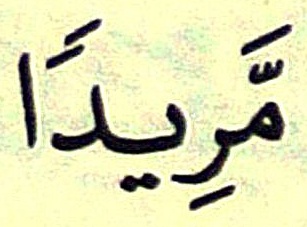 مَّرِيدًا